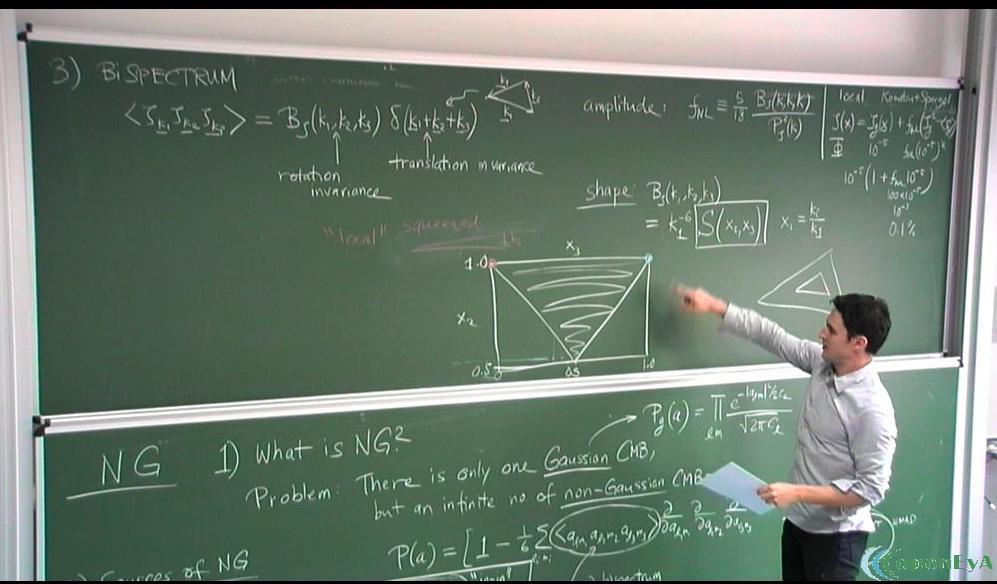 3) BiSPECTRUM
<ζ_k1 ζ_k2 ζ_k3> = B_ζ(k1,k2,k3) δ(k1+k2+k3)
rotation invariance
translation invariance
amplitude: f_NL ≡ 5/18 B_ζ(k,k,k)/P_ζ²(k)
local
10^-5
10^-5(1 + f_NL 10^-5)
100x10^-5
10^-3
0.1%
shape: B_ζ(k1,k2,k3)
= k1^-6 S(x2,x3) x_i = k_i/k1
"local" squeezed
x3
1.0
x2
0.5
0.5
1.0
NG
1) What is NG?
Problem: There is only one Gaussian CMB,
but an infinite no of non-Gaussian CMB
P_g(a) = ∏_lm e^(-|a_lm|²/2C_l)/√2πC_l
P(a) = [1 - 1/6 Σ <a_l1m1 a_l2m2 a_l3m3> ∂/∂a_l1m1 ∂/∂a_l2m2 ∂/∂a_l3m3
Sources of NG